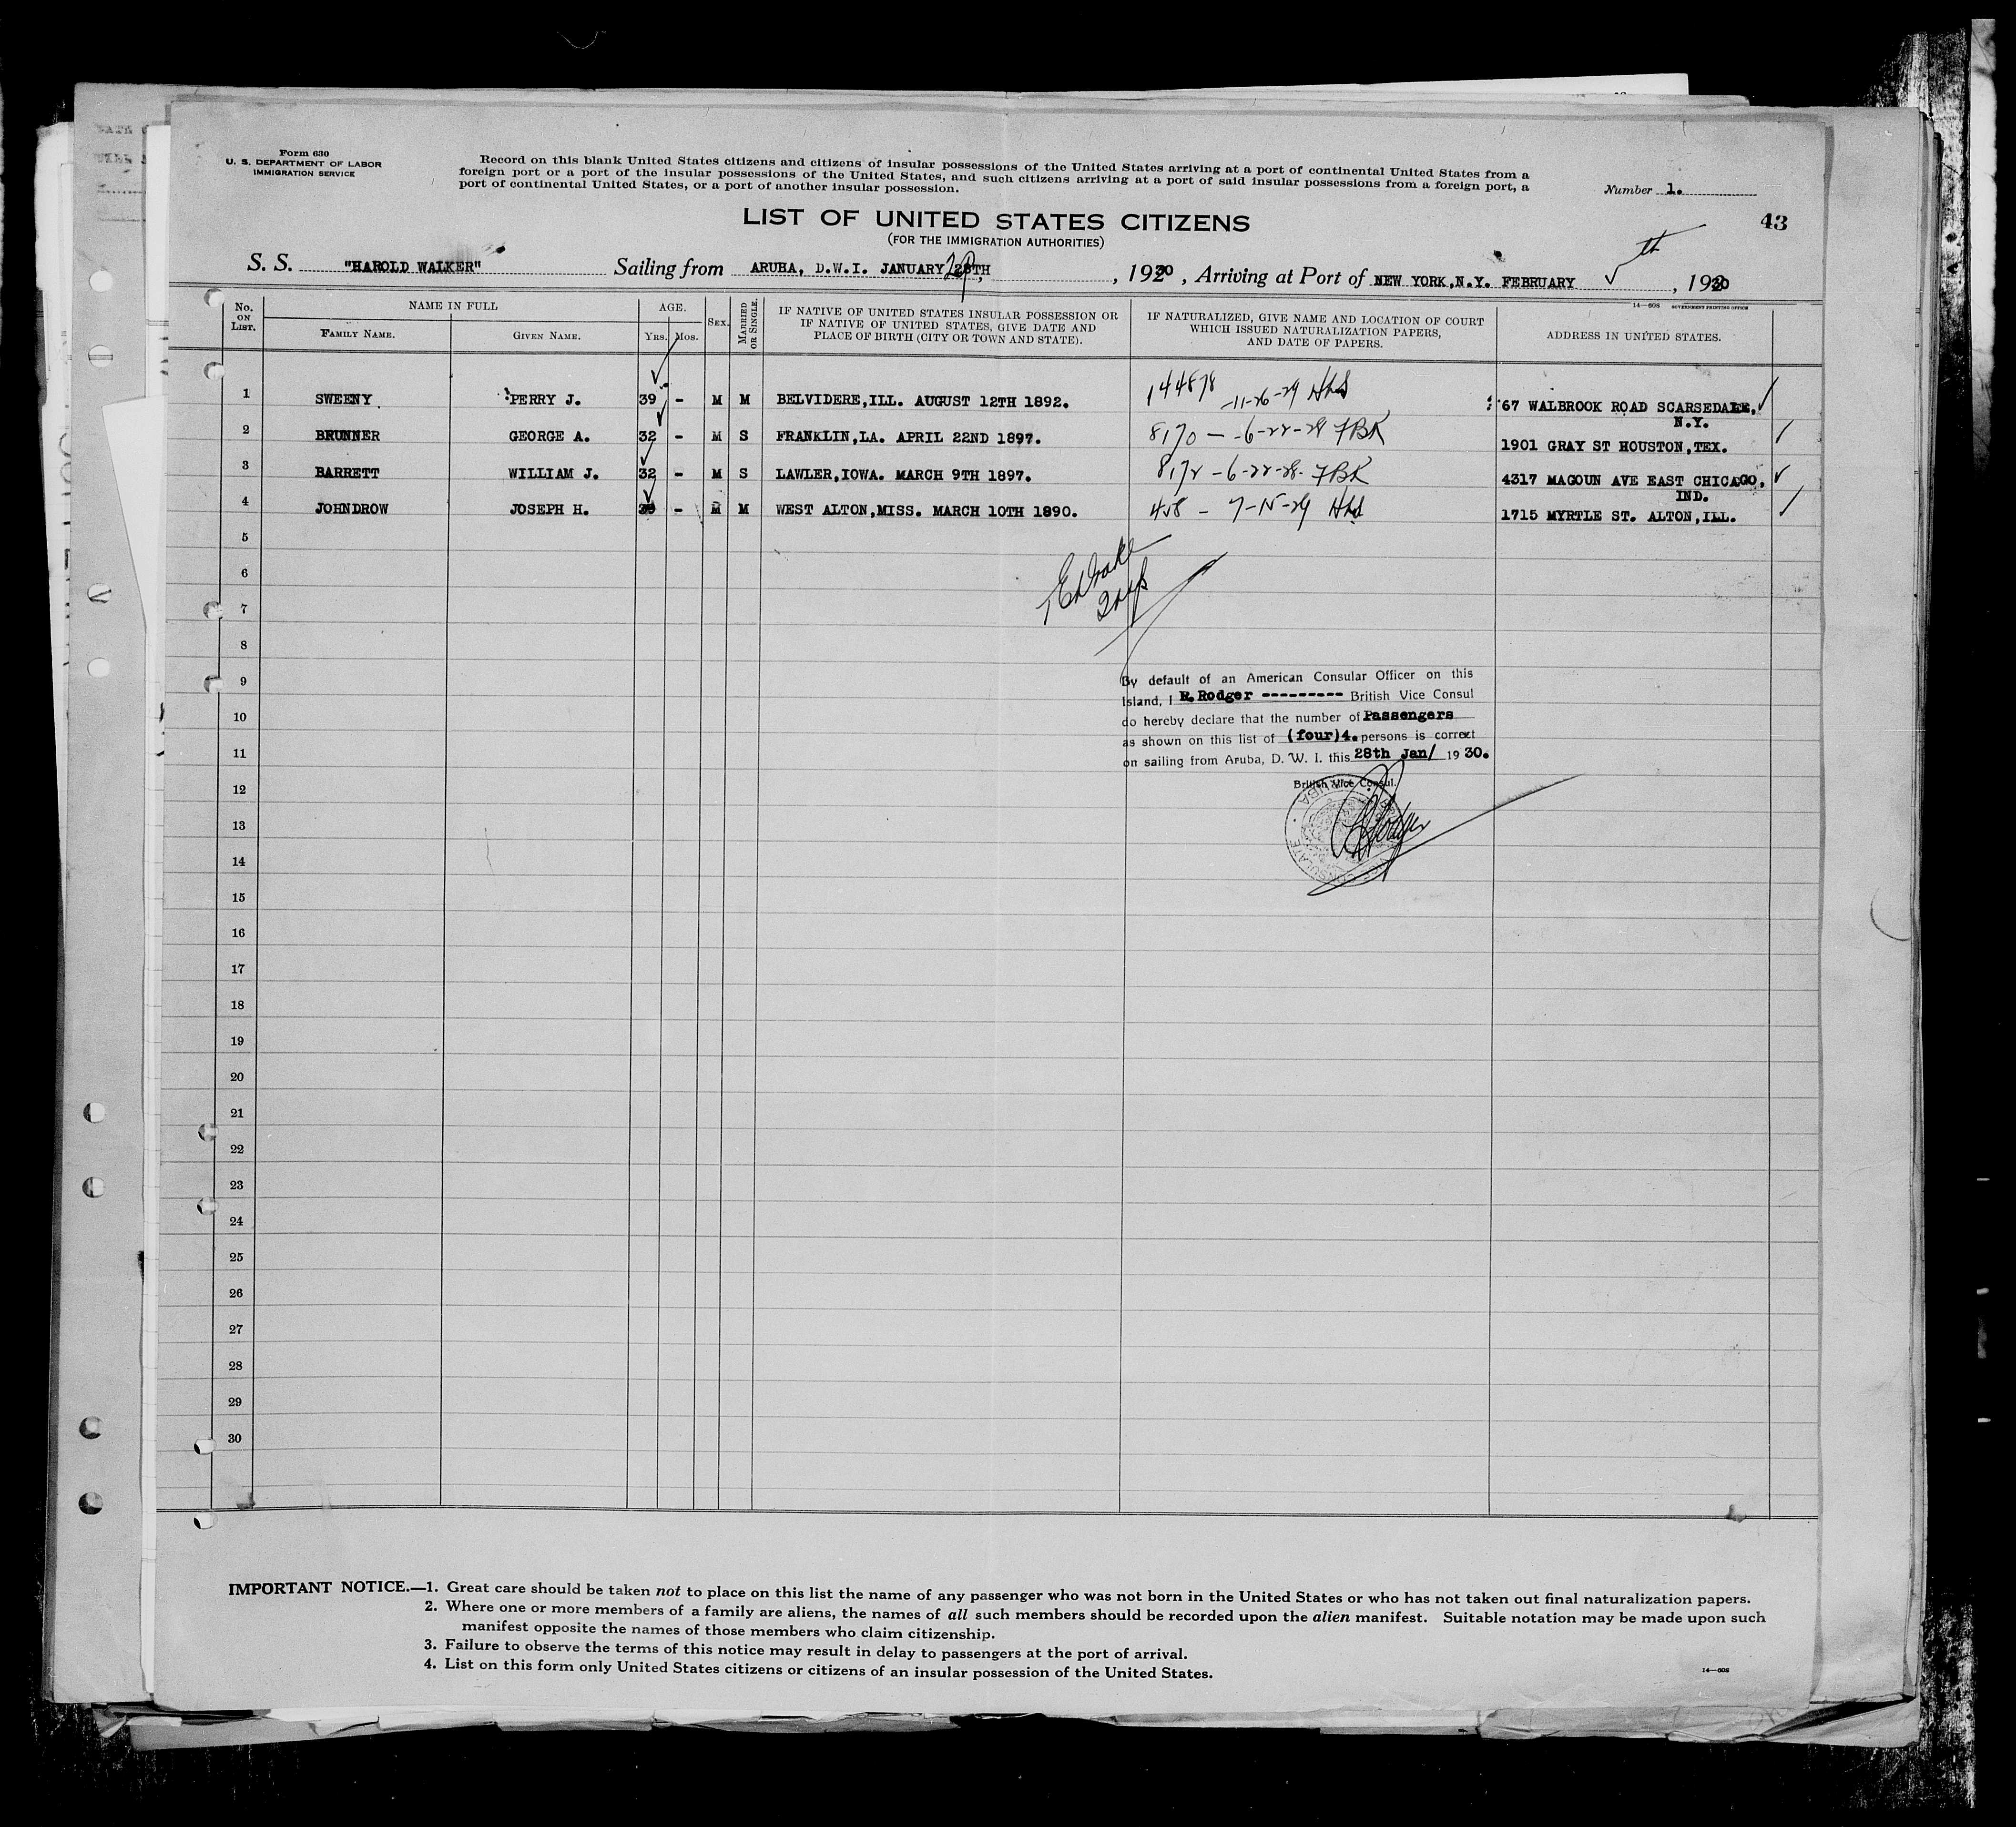 Form 630
U. S. DEPARTMENT OF LABOR
IMMIGRATION SERVICE
Record on this blank United States citizens and citizens of insular possessions of the United States arriving at a port of continental United States from a
foreign port or a port of the insular possessions of the United States, and such citizens arriving at a port of said insular possessions from a foreign port, a
port of continental United States, or a port of another insular possession.
Number 1.
43
LIST OF UNITED STATES CITIZENS
(FOR THE IMMIGRATION AUTHORITIES)
S. S. "HAROLD WALKER" Sailing from ARUBA, D.W.I. JANUARY 28TH, 1930, Arriving at Port of NEW YORK,N.Y. FEBRUARY th, 1930
14—608 GOVERNMENT PRINTING OFFICE
No. ON LIST.
NAME IN FULL
FAMILY NAME.
GIVEN NAME.
AGE.
YRS. MOS.
SEX.
MARRIED OR SINGLE.
IF NATIVE OF UNITED STATES INSULAR POSSESSION OR
IF NATIVE OF UNITED STATES, GIVE DATE AND
PLACE OF BIRTH (CITY OR TOWN AND STATE).
IF NATURALIZED, GIVE NAME AND LOCATION OF COURT
WHICH ISSUED NATURALIZATION PAPERS,
AND DATE OF PAPERS.
ADDRESS IN UNITED STATES.
1 SWEENY PERRY J. 39 - M M BELVIDERE,ILL. AUGUST 12TH 1892. 144878 -11-26-29 67 WALBROOK ROAD SCARSEDALE,
N.Y.
2 BRUNNER GEORGE A. 32 - M S FRANKLIN,LA. APRIL 22ND 1897. 8170 - 6-22-29 FBK 1901 GRAY ST HOUSTON,TEX.
3 BARRETT WILLIAM J. 32 - M S LAWLER,IOWA. MARCH 9TH 1897. 8172 - 6-22-28. FBK 4317 MAGOUN AVE EAST CHICAGO,
IND.
4 JOHNDROW JOSEPH H. 39 - M M WEST ALTON,MISS. MARCH 10TH 1890. 458 - 7-15-29 1715 MYRTLE ST. ALTON,ILL.
5
6
7
8
9
10
11
12
13
14
15
16
17
18
19
20
21
22
23
24
25
26
27
28
29
30
By default of an American Consular Officer on this
Island, I R.Rodger --------- British Vice Consul
do hereby declare that the number of Passengers
as shown on this list of (four)4. persons is correct
on sailing from Aruba, D. W. I. this 28th Jan/ 1930.
British Vice Consul.
IMPORTANT NOTICE.—1. Great care should be taken not to place on this list the name of any passenger who was not born in the United States or who has not taken out final naturalization papers.
2. Where one or more members of a family are aliens, the names of all such members should be recorded upon the alien manifest. Suitable notation may be made upon such
manifest opposite the names of those members who claim citizenship.
3. Failure to observe the terms of this notice may result in delay to passengers at the port of arrival.
4. List on this form only United States citizens or citizens of an insular possession of the United States.
14—608